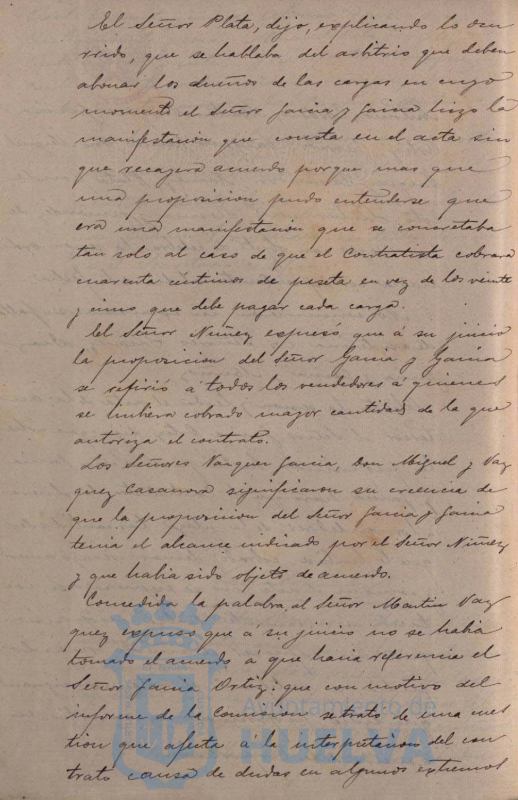 El Señor Plata, dijo, explicando lo ocu
rrido, que se hablaba del arbitrio que deben
abonar los dueños de las cargas en cuyo
momento el Señor Garcia y Garcia hizo la
manifestacion que consta en el acta sin
que recayera acuerdo porque mas que
una proposicion pudo entenderse que
era una manifestacion que se concretaba
tan solo al caso de que el Contratista cobrara
cuarenta centimos de peseta en vez de los veinte
y cinco que debe pagar cada carga.
El Señor Nuñez expresó que á su juicio
la proposicion del Señor Garcia y Garcia
se refirió a todos los vendedores á quienes
se hubiera cobrado mayor cantidad de la que
autoriza el contrato.
Los Señores Vazquez Garcia, Don Miguel y Vaz
quez Casanova significaron su creencia de
que la proposicion del Señor Garcia y Garcia
tenia el alcance indicado por el Señor Nuñez
y que habia sido objeto de acuerdo.
Concedida la palabra al Señor Martin Vaz
quez expuso que á su juicio no se habia
tomado el acuerdo á que hacia referencia el
Señor Garcia Ortiz: que con motivo del
informe de la Comision se trató de una cues
tion que afecta á la interpretacion del con
trato causa de dudas en algunos extremos
Ayuntamiento de
HUELVA